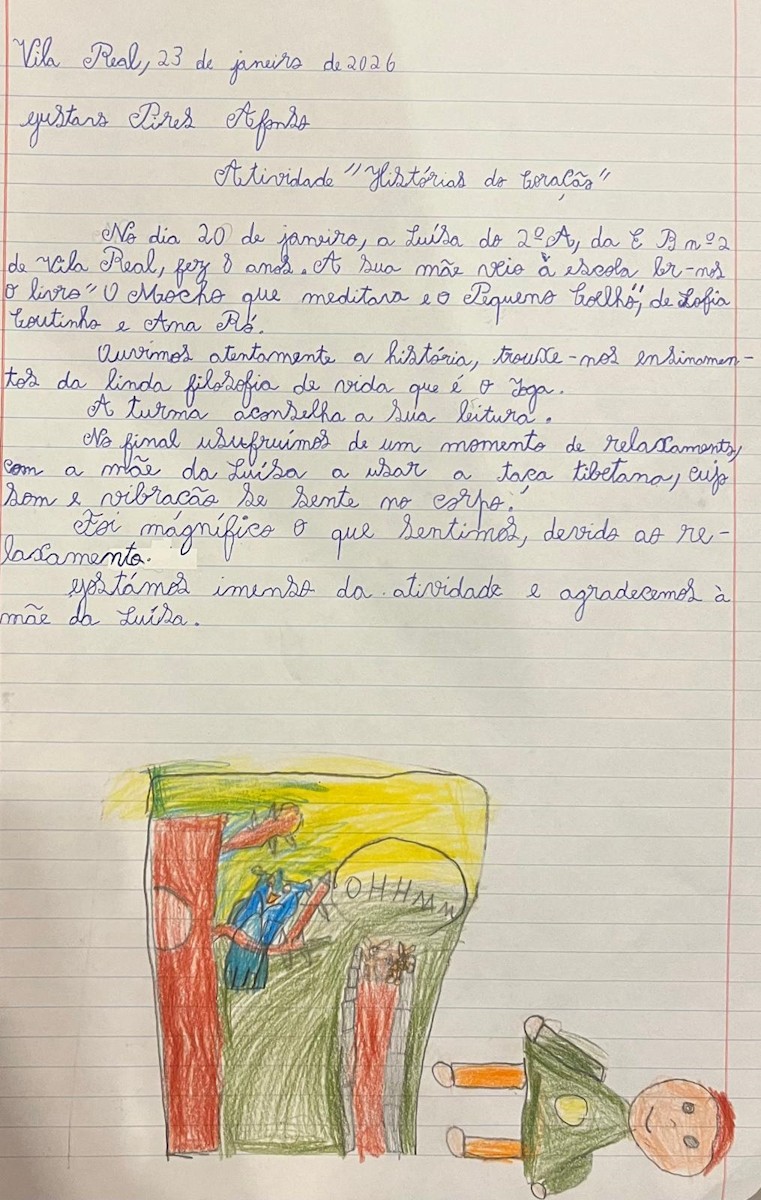 Vila Real, 23 de janeiro de 2026
Gustavo Pires Afonso
Atividade "Histórias do Coração"
No dia 20 de janeiro, a Luísa do 2º A, da E B nº 2
de Vila Real, fez 8 anos. A sua mãe veio à escola ler-nos
o livro "O Mocho que meditava e o Pequeno Coelho", de Sofia
Coutinho e Ana Ró.
Ouvimos atentamente a história, trouxe-nos ensinamen-
tos da linda filosofia de vida que é o Yoga.
A turma aconselha a sua leitura.
No final usufruímos de um momento de relaxamento,
com a mãe da Luísa a usar a taça tibetana, cujo
som e vibração se sente no corpo!
Foi mágnífico o que sentimos, devido ao re-
laxamento.
Gostámos imenso da atividade e agradecemos à
mãe da Luísa.
OHHMM